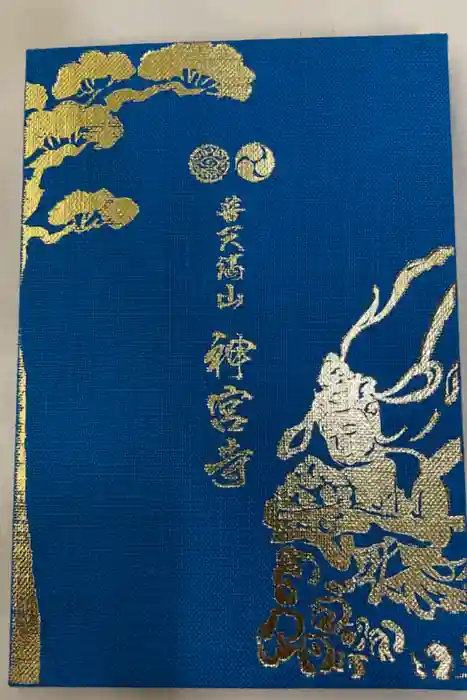 普天満山
神宮寺